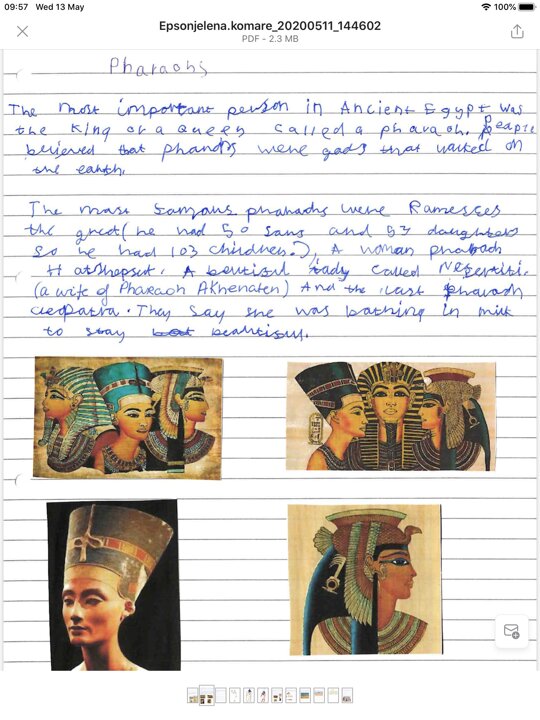 09:57 Wed 13 May
100%
Epsonjelena.komare_20200511_144602
PDF - 2.3 MB
Pharaohs
The most important person in Ancient Egypt was
the King or a Queen called a pharaoh. Peaple
believed that were gods that walked on
the earth.
The most famous pharaohs were Ramesses
the great (he had 50 sons and 53 daughters
so he had 103 children.), A woman pharaoh
Hatshepsut. A beutisul lady called Nefertiti.
(a wife of Pharaoh Akhenaten) And the last pharaoh
cleopatra. They say she was bathing in milk
to stay beautisul.